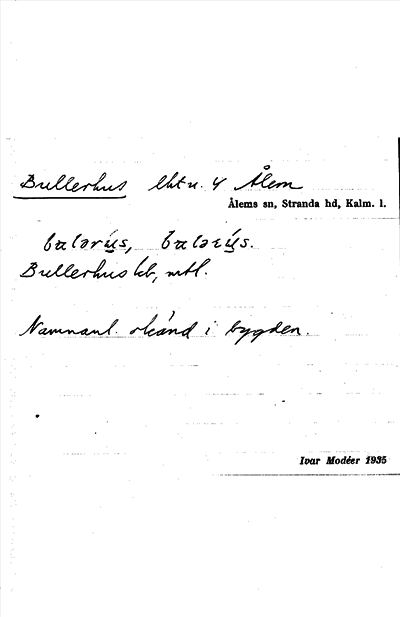 Bullerhus lht u. 4 Ålem
Ålems sn, Stranda hd, Kalm. l.
Bullerhus kb, mtl.
Namnanl. okänd i bygden.
Ivar Modéer 1935